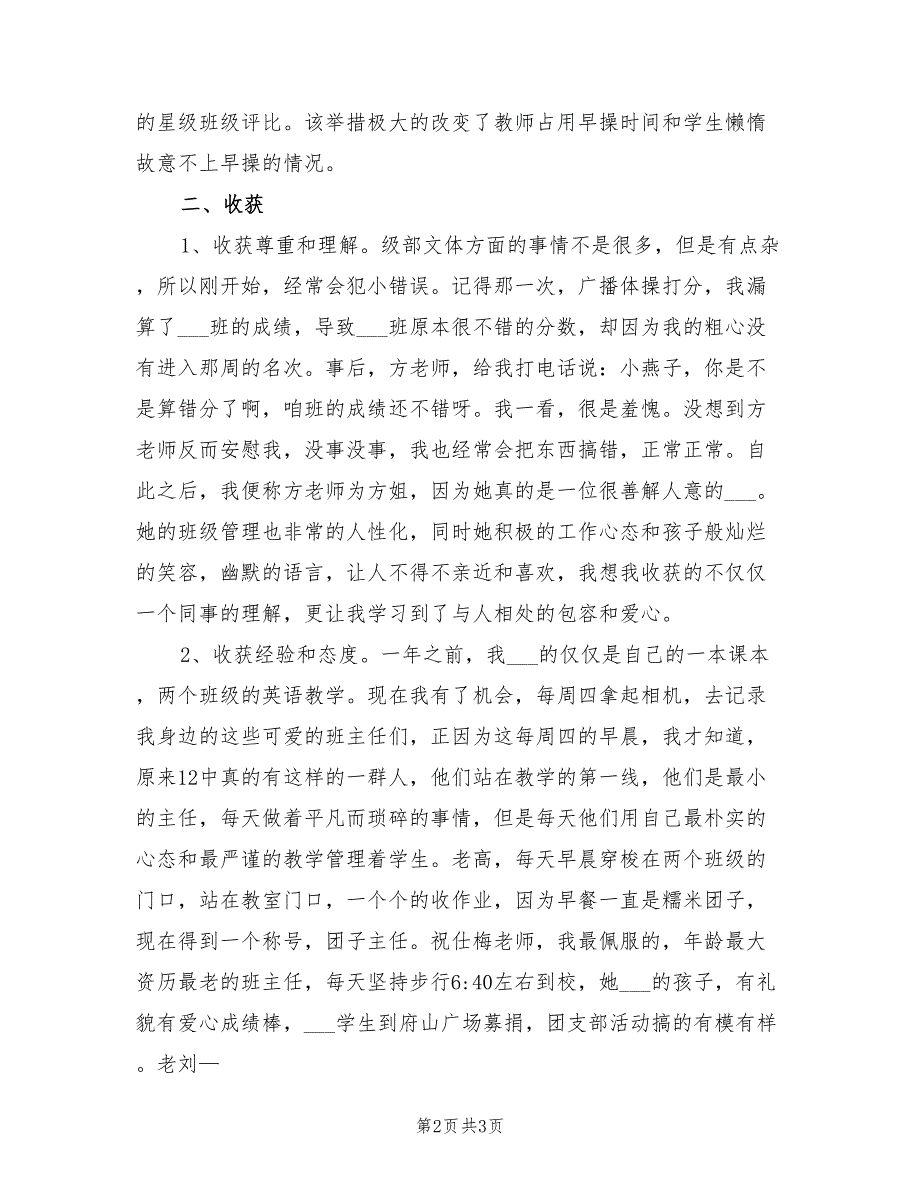 的星级班级评比。该举措极大的改变了教师占用早操时间和学生懒惰
故意不上早操的情况。
二、收获
1、收获尊重和理解。级部文体方面的事情不是很多，但是有点杂
，所以刚开始，经常会犯小错误。记得那一次，广播体操打分，我漏
算了___班的成绩，导致___班原本很不错的分数，却因为我的粗心没
有进入那周的名次。事后，方老师，给我打电话说：小燕子，你是不
是算错分了啊，咱班的成绩还不错呀。我一看，很是羞愧。没想到方
老师反而安慰我，没事没事，我也经常会把东西搞错，正常正常。自
此之后，我便称方老师为方姐，因为她真的是一位很善解人意的___。
她的班级管理也非常的人性化，同时她积极的工作心态和孩子般灿烂
的笑容，幽默的语言，让人不得不亲近和喜欢，我想我收获的不仅仅
一个同事的理解，更让我学习到了与人相处的包容和爱心。
2、收获经验和态度。一年之前，我___的仅仅是自己的一本课本
，两个班级的英语教学。现在我有了机会，每周四拿起相机，去记录
我身边的这些可爱的班主任们，正因为这每周四的早晨，我才知道，
原来12中真的有这样的一群人，他们站在教学的第一线，他们是最小
的主任，每天做着平凡而琐碎的事情，但是每天他们用自己最朴实的
心态和最严谨的教学管理着学生。老高，每天早晨穿梭在两个班级的
门口，站在教室门口，一个个的收作业，因为早餐一直是糯米团子，
现在得到一个称号，团子主任。祝仕梅老师，我最佩服的，年龄最大
资历最老的班主任，每天坚持步行6:40左右到校，她___的孩子，有礼
貌有爱心成绩棒，___学生到府山广场募捐，团支部活动搞的有模有样
。老刘—
第2页共3页